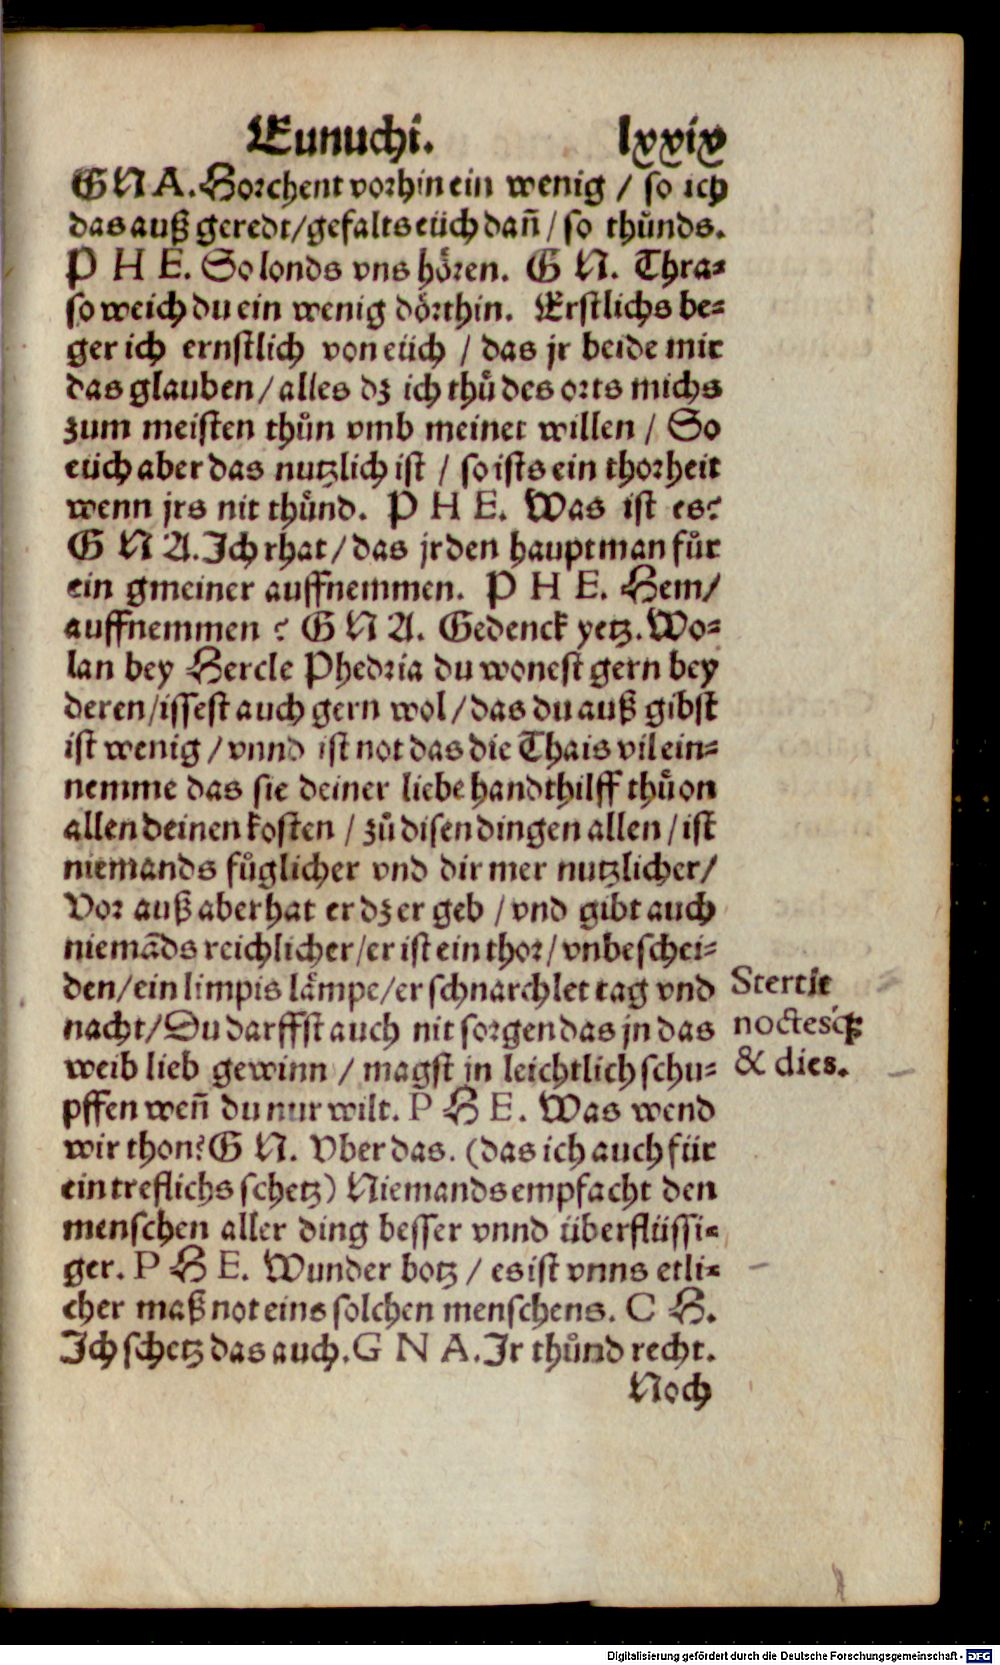 Eunuchi. lxxix
GNA. Horchent vorhin ein wenig / so ich
das auß geredt/gefalts eüch dañ / so thůnds.
P H E. So londs vns hören. G N. Thra⸗
so weich du ein wenig dörthin. Erstlichs be⸗
ger ich ernstlich von eüch / das jr beide mir
das glauben / alles dz ich thů des orts michs
zum meisten thůn vmb meinet willen / So
eüch aber das nutzlich ist / so ists ein thorheit
wenn jrs nit thůnd. P H E. Was ist es?
G N A. Ich rhat / das jr den hauptman für
ein gmeiner auffnemmen. P H E. Hem/
auffnemmen ? G N A. Gedenck yetz. Wo⸗
lan bey Hercle Phedria du wonest gern bey
deren/issest auch gern wol / das du auß gibst
ist wenig / vnnd ist not das die Thais vil ein⸗
nemme das sie deiner liebe handthilff thů on
allen deinen kosten / zů disen dingen allen / ist
niemands fůglicher vnd dir mer nutzlicher/
Vor auß aber hat er dz er geb / vnd gibt auch
niemãds reichlicher/er ist ein thor/ vnbeschei⸗
den/ein limpis lämpe/er schnarchlet tag vnd
nacht/Du darffst auch nit sorgen das jn das
weib lieb gewinn / magst jn leichtlich schu⸗
pffen weñ du nur wilt. P H E. Was wend
wir thon? G N. Vber das. (das ich auch für
ein treflichs schetz) Niemands empfacht den
menschen aller ding besser vnnd überflüssi⸗
ger. P H E. Wunder botz / es ist vnns etli⸗
cher maß not eins solchen menschens. C H.
Ich schetz das auch. G N A. Jr thůnd recht.
Noch
Stertit
noctesq́;
& dies.
Digitalisierung gefördert durch die Deutsche Forschungsgemeinschaft - DFG